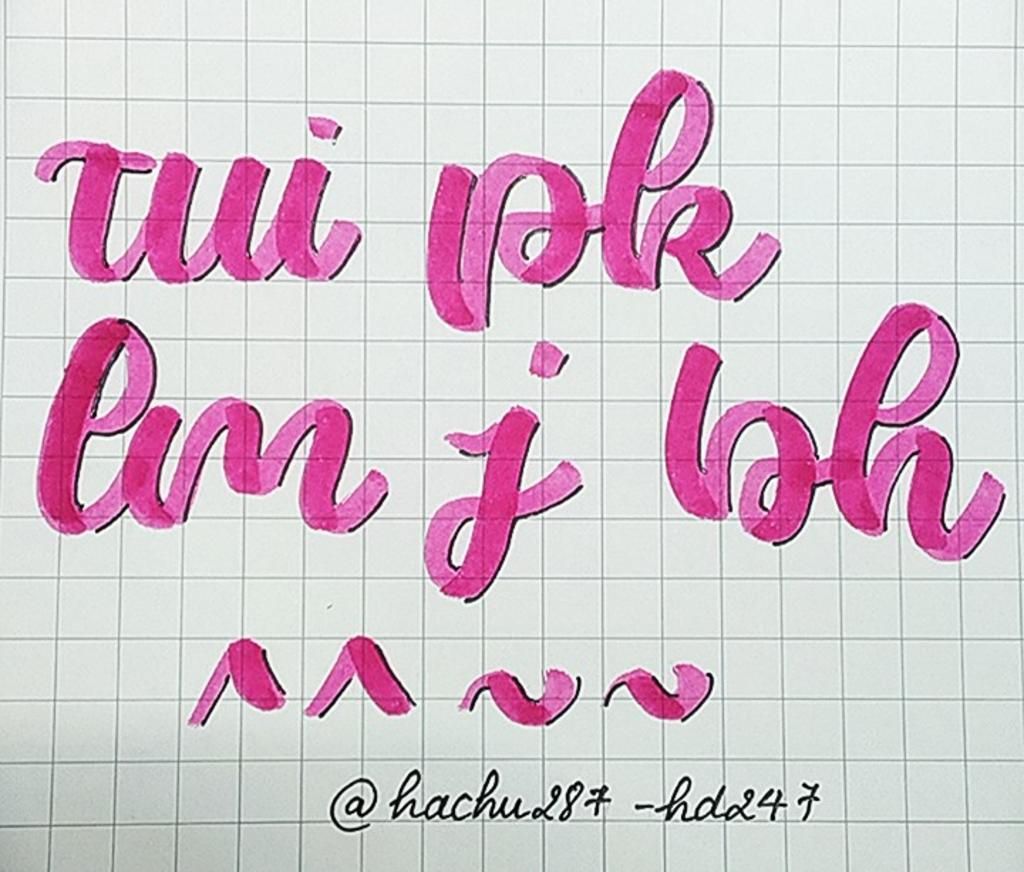 tui pk
lm j bh
^ ^ ~ ~
@hachu287 -hd247